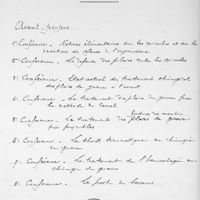 Avant-propos
1e Conférence - Notions élémentaires sur les microbes et sur les réactions de défense de l'organisme
2e Conférence. La défense des plaies contre les microbes
3e Conférence. Etat actuel du traitement chirurgical des plaies de guerre à l'avant
4e Conférence. Le traitement des plaies de guerre par la méthode de Carrel
5e Conférence. Le traitement des plaies de guerre par
6e Conférence. Le choc traumatique en chirurgie de guerre
7e Conférence. Le traitement de l'hémorragie en chirurgie de guerre
8e Conférence. Le poste de secours